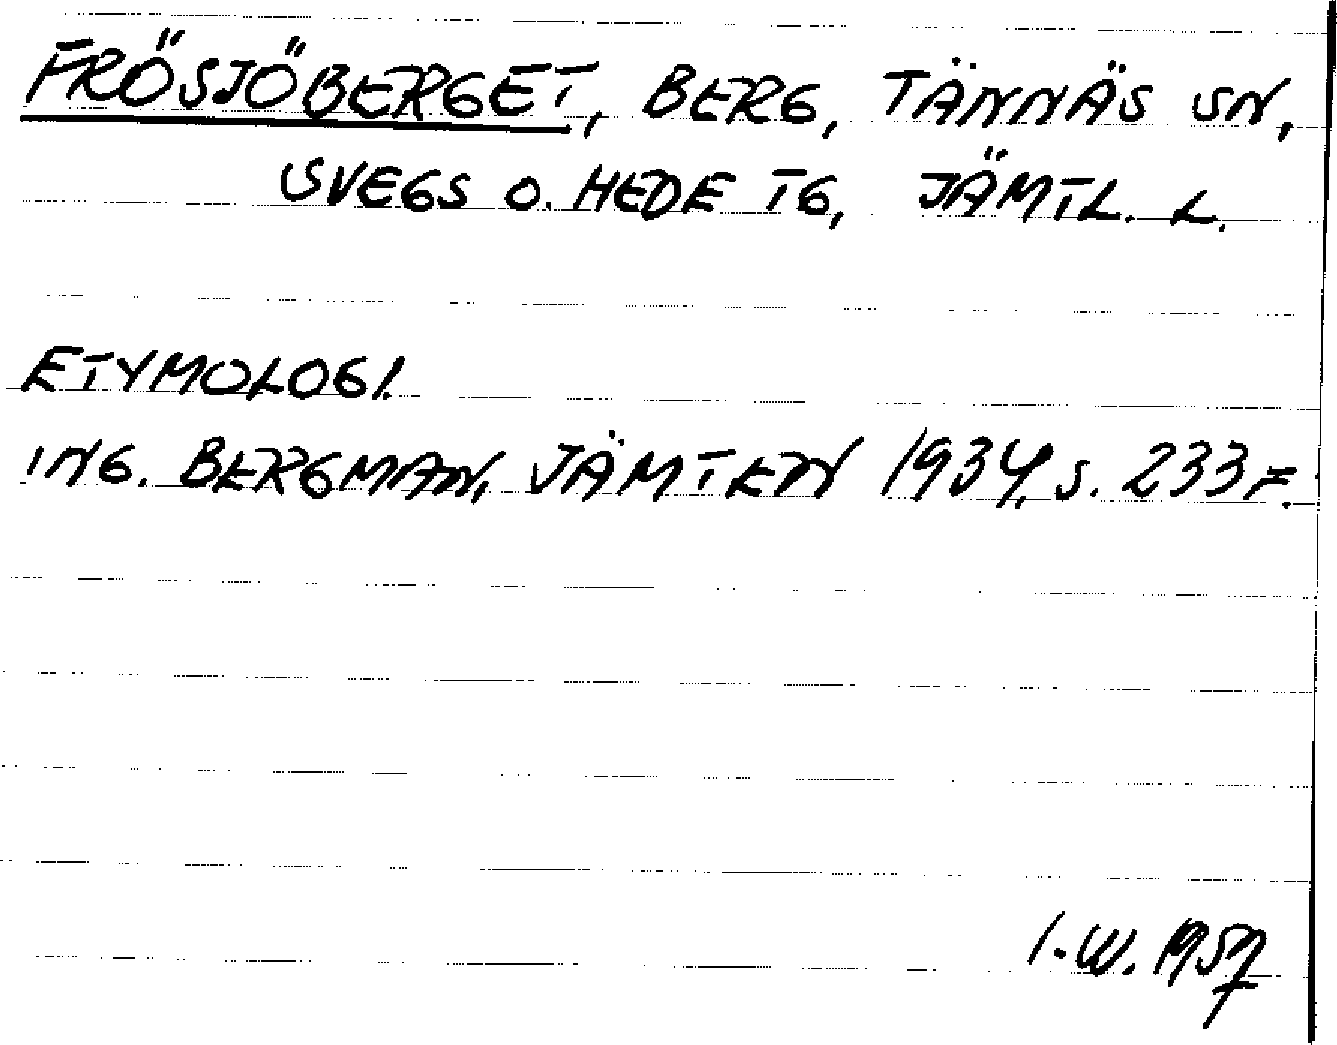 FRÖSJÖBERGET, BERG, TÄNNÄS SN,
SVEGS O. HEDE TG, JÄMTL. L.
ETYMOLOGI.
ING. BERGMAN, JÄMTEN 1934, S. 233 F.
I-W. 1957